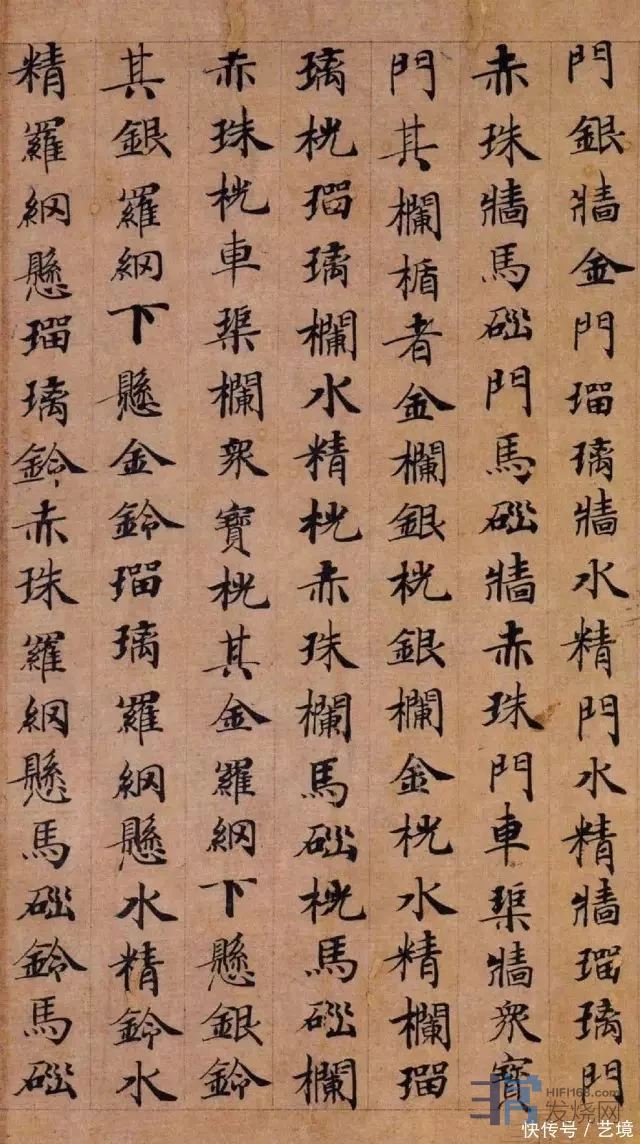 門銀牆金門瑠璃牆水精門水精牆瑠璃門
赤珠牆馬碯門馬碯牆赤珠門車渠牆眾寶
門其欄楯者金欄銀桄銀欄金桄水精欄瑠
璃桄瑠璃欄水精桄赤珠欄馬碯桄馬碯欄
赤珠桄車渠欄眾寶桄其金羅網下懸銀鈴
其銀羅網下懸金鈴瑠璃羅網懸水精鈴水
精羅網懸瑠璃鈴赤珠羅網懸馬碯鈴馬碯
HIFI168.com
发烧网
快传号/艺境